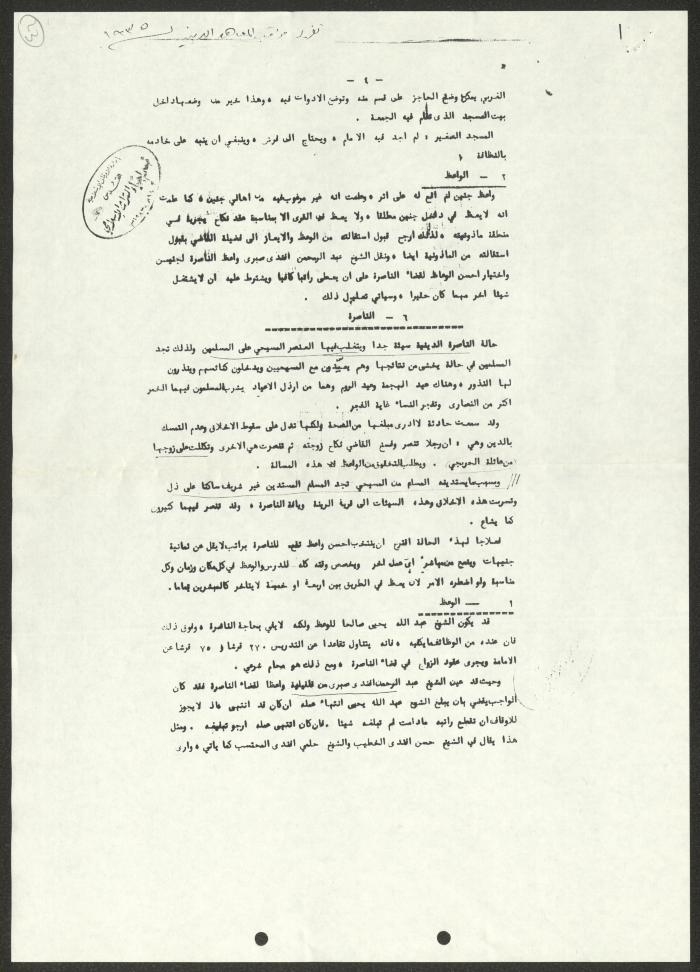 تقرير مراقب المعاهد الدينية لسنة ١٩٣٥
- ٤ -
الغربي يمكن وضع الحاجز على قسم منه وتوضع الادوات فيه ، وهذا خير من وضعها داخل
بيت المسجد الذي تقام فيه الجمعة .
المسجد الصغير : لم اجد فيه الامام ، ويحتاج الى فرش ، وينبغي ان ينبه على خادمه
بالنظافة .
٢ - الواعظ
واعظ جنين لم اقع له على اثر ، وعلمت انه غير مرغوب فيه من اهالي جنين ، كما علمت
انه لا يعظ في داخل جنين مطلقا ، ولا يعظ في القرى الا بمناسبة عقد نكاح يجريه في
منطقة ماذونيته ، لذلك ارجح قبول استقالته من الوعظ والايعاز الى فضيلة القاضي بقبول
استقالته من الماذونية ايضا ، ونقل الشيخ عبد الرحمن افندي صبري واعظ الناصرة لجنين
واختيار احسن الوعاظ لقضاء الناصرة على ان يعطى راتبا كافيا ويشترط عليه ان لا يشتغل
شيئا اخر مهما كان حقيرا ، وسياتي تعليل ذلك .
٦ - الناصرة
حالة الناصرة الدينية سيئة جدا ويتغلب فيها العنصر المسيحي على المسلمين ولذلك تجد
المسلمين في حالة يخشى من نتائجها وهم يعيدون مع المسيحيين ويدخلون كنائسهم وينذرون
لها النذور ، وهناك عيد البهجة وعيد الروم وهما من ارذل الاعياد يشرب المسلمون فيهما الخمر
اكثر من النصارى وتفجر النساء غاية الفجر .
وقد سمعت حادثة لا ادري مبلغها من الصحة ولكنها تدل على سقوط الاخلاق وعدم التمسك
بالدين وهي : ان رجلا تنصر وفسخ القاضي نكاح زوجته ثم تنصرت هي الاخرى وتكللت على زوجها
من عائلة . ويطلب التحقيق من الواعظ هذه المسالة .
وبسبب ما يستدينه المسلم من المسيحي تجد المسلم المستدين غير شريف ساكتا على ذل
وتسربت هذه الاخلاق وهذه السيئات الى قرية الرينة ويافة الناصرة ، وقد تنصر فيهما كثيرون
كما يشاع .
فعلاجا لهذه الحالة اقترح ان ينتخب احسن واعظ تقي للناصرة براتب لا يقل عن ثمانية
جنيهات ويمنع من مباشرة اي عمل اخر ويخصص وقته كله للدرس والوعظ في كل مكان وزمان وكل
مناسبة ولو اضطره الامر لان يعظ في الطريق بين اربعة او خمسة لا يتاخر كالمبشرين تماما .
١ - الوعظ
قد يكون الشيخ عبد الله يحيى صالحا للوعظ ولكنه لا يفي بحاجة الناصرة ، وفوق ذلك
فان عنده من الوظائف ما يكفيه ، فانه يتناول تقاعدا عن التدريس ٢٧٠ قرشا و ٧٥ قرشا عن
الامامة ويجري عقود الزواج في قضاء الناصرة ، ومع ذلك هو محام شرعي .
وحيث قد عين الشيخ عبد الرحمن افندي صبري من قلقيلية واعظا لقضاء الناصرة فقد كان
الواجب يقضي بان يبلغ الشيخ عبد الله يحيى انتهاء عمله ان كان قد انتهى فانه لا يجوز
للاوقاف ان تقطع راتبه ما دامت لم تبلغه شيئا . فان كان انتهى عمله ارجو تبليغه . ومثل
هذا يقال في الشيخ حسن افندي الخطيب والشيخ حلمي افندي المحتسب كما ياتي ، وارى